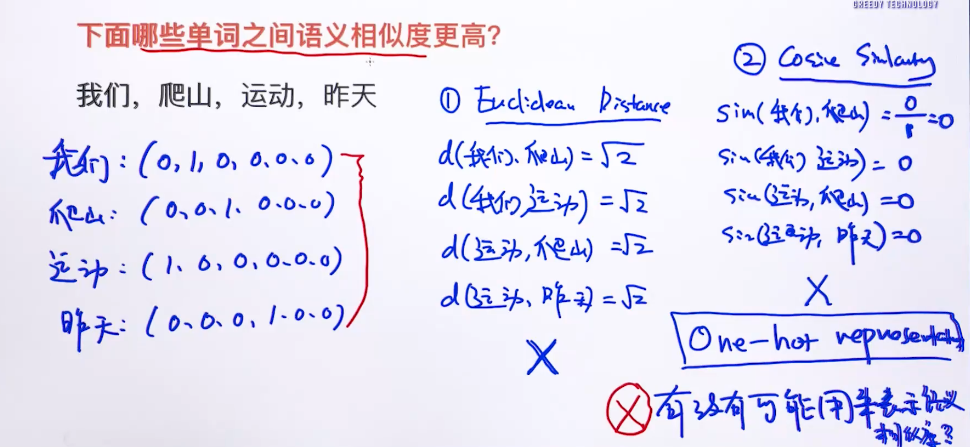 GREEDY TECHNOLOGY
下面哪些单词之间语义相似度更高?
我们，爬山，运动，昨天
我们: (0, 1, 0, 0, 0, 0)
爬山: (0, 0, 1, 0, 0, 0)
运动: (1, 0, 0, 0, 0, 0)
昨天: (0, 0, 0, 1, 0, 0)
① Euclidean Distance
d(我们、爬山) = √2
d(我们,运动) = √2
d(运动,爬山) = √2
d(运动、昨天) = √2
X
② Cosine Similarity
sim(我们,爬山) = 0/1 = 0
sim(我们 运动) = 0
sim(运动,爬山) = 0
sim(运动, 昨天) = 0
X
One-hot representation
X 有没有可能用来表示语义
相似度?